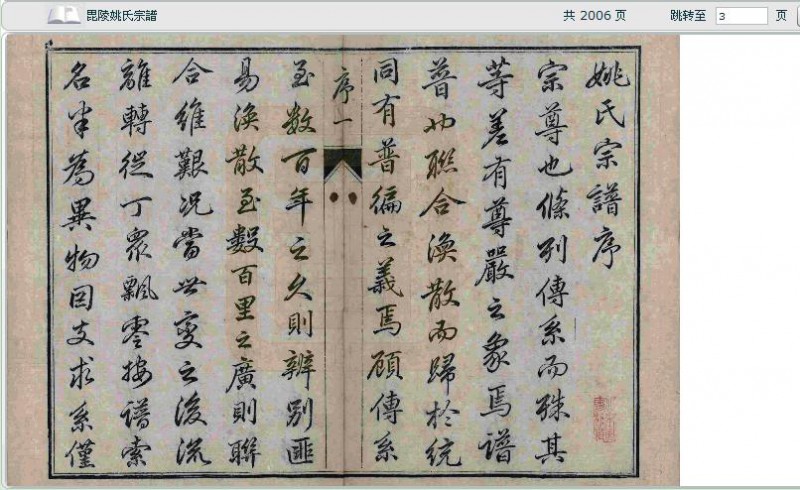 毘陵姚氏宗譜 共 2006 页 跳转至 3 页
姚氏宗譜序
宗尊也條列傳系而殊其
等差有尊嚴之象焉譜
普也聯合渙散而歸於統
同有普徧之義焉顧傳系
序一
至數百年之久則辨別匪
易渙散至數百里之廣則聯
合維艱况當世變之後流
離轉徙丁衆飄零按譜索
名半為異物因支求系僅